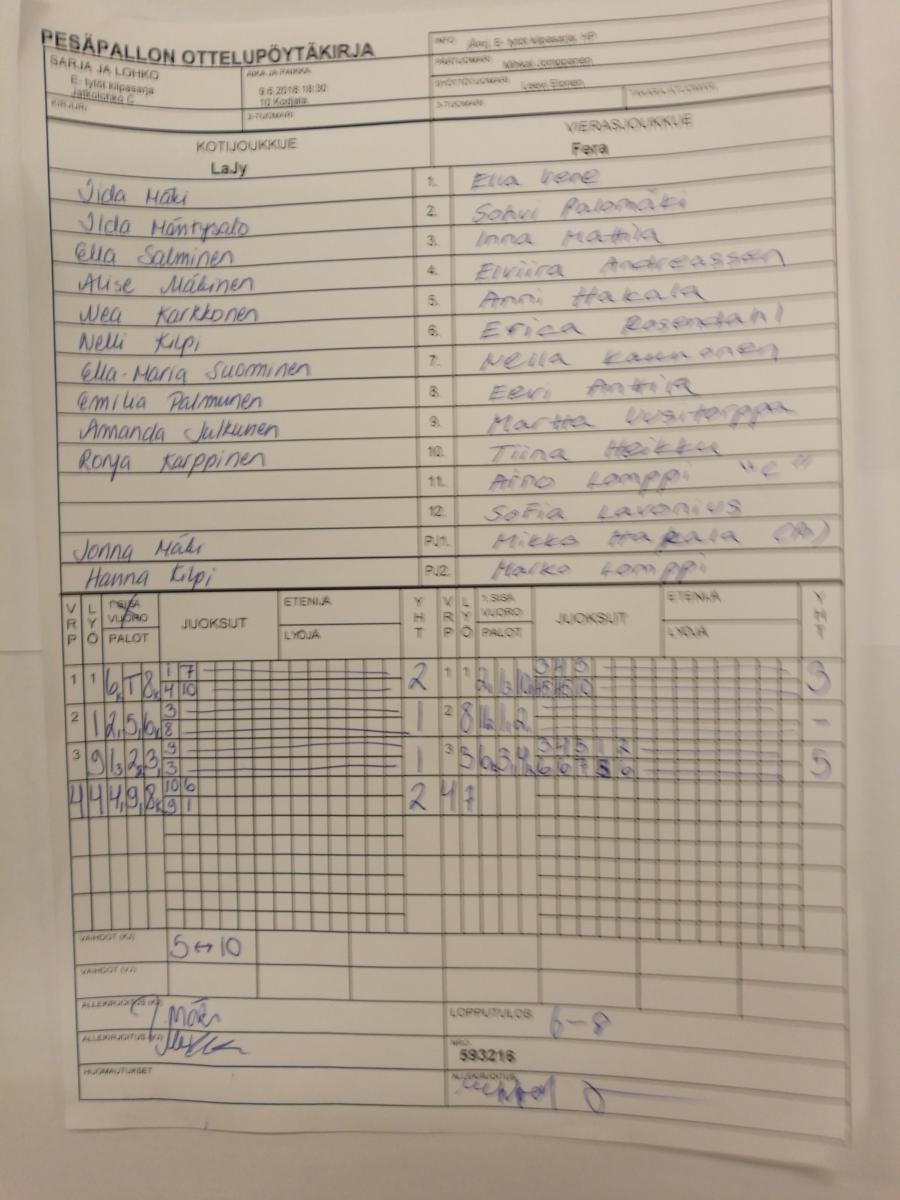 PESÄPALLON OTTELUPÖYTÄKIRJA
SARJA JA LOHKO
E- tytöt kilpasarja
Jatkolohko C
AIKA JA PAIKKA
9.6.2018 18:30
10 Kodjala
KIRJURI
2-TUOMARI
INFO: E- tytöt kilpasarja,
PÄÄTUOMARI Mihkal Jomppanen
SYÖTTÖTUOMARI Leevi Elonen
3-TUOMARI
TAKARAJATUOMARI
KOTIJOUKKUE
LaJy
VIERASJOUKKUE
Fera
Iida Mäki 1. Ella Vene
Ilda Mäntysalo 2. Sohvi Palomäki
Ella Salminen 3. Inna Mattila
Alise Mäkinen 4. Elviira Andreassen
Nea Karkkonen 5. Anni Hakala
Nelli Kilpi 6. Erica Rosendahl
Ella-Maria Suominen 7. Nella Kaunonen
Emilia Palmunen 8. Eevi Anttila
Amanda Julkunen 9. Martha Uusitorppa
Ronja Karppinen 10. Tiina Heikku
11. Aino Lomppi "C"
12. Sofia Lavonius
Jonna Mäki PJ1. Mikko Hakala
Hanna Kilpi PJ2. Marko Lomppi
VRP LYÖ 1.SISÄ VUORO PALOT JUOKSUT ETENIJÄ LYÖJÄ YHT VRP LYÖ 1.SISÄ VUORO PALOT JUOKSUT ETENIJÄ LYÖJÄ YHT
1 1 1 7 2 1 1 3 4 5 3
4 10
2 1 3 1 2 8 -
8
3 9 3 1 3 5 3 4 5 1 2 5
3 6 6 7 5 6
4 4 10 6 2 4 7
9 1
VAIHDOT (KJ) 5↔10
VAIHDOT (VJ)
ALLEKIRJOITUS (KJ) J Mäki
LOPPUTULOS 6-8
ALLEKIRJOITUS (VJ)
NRO:
593216
HUOMAUTUKSET
ALLEKIRJOITUS